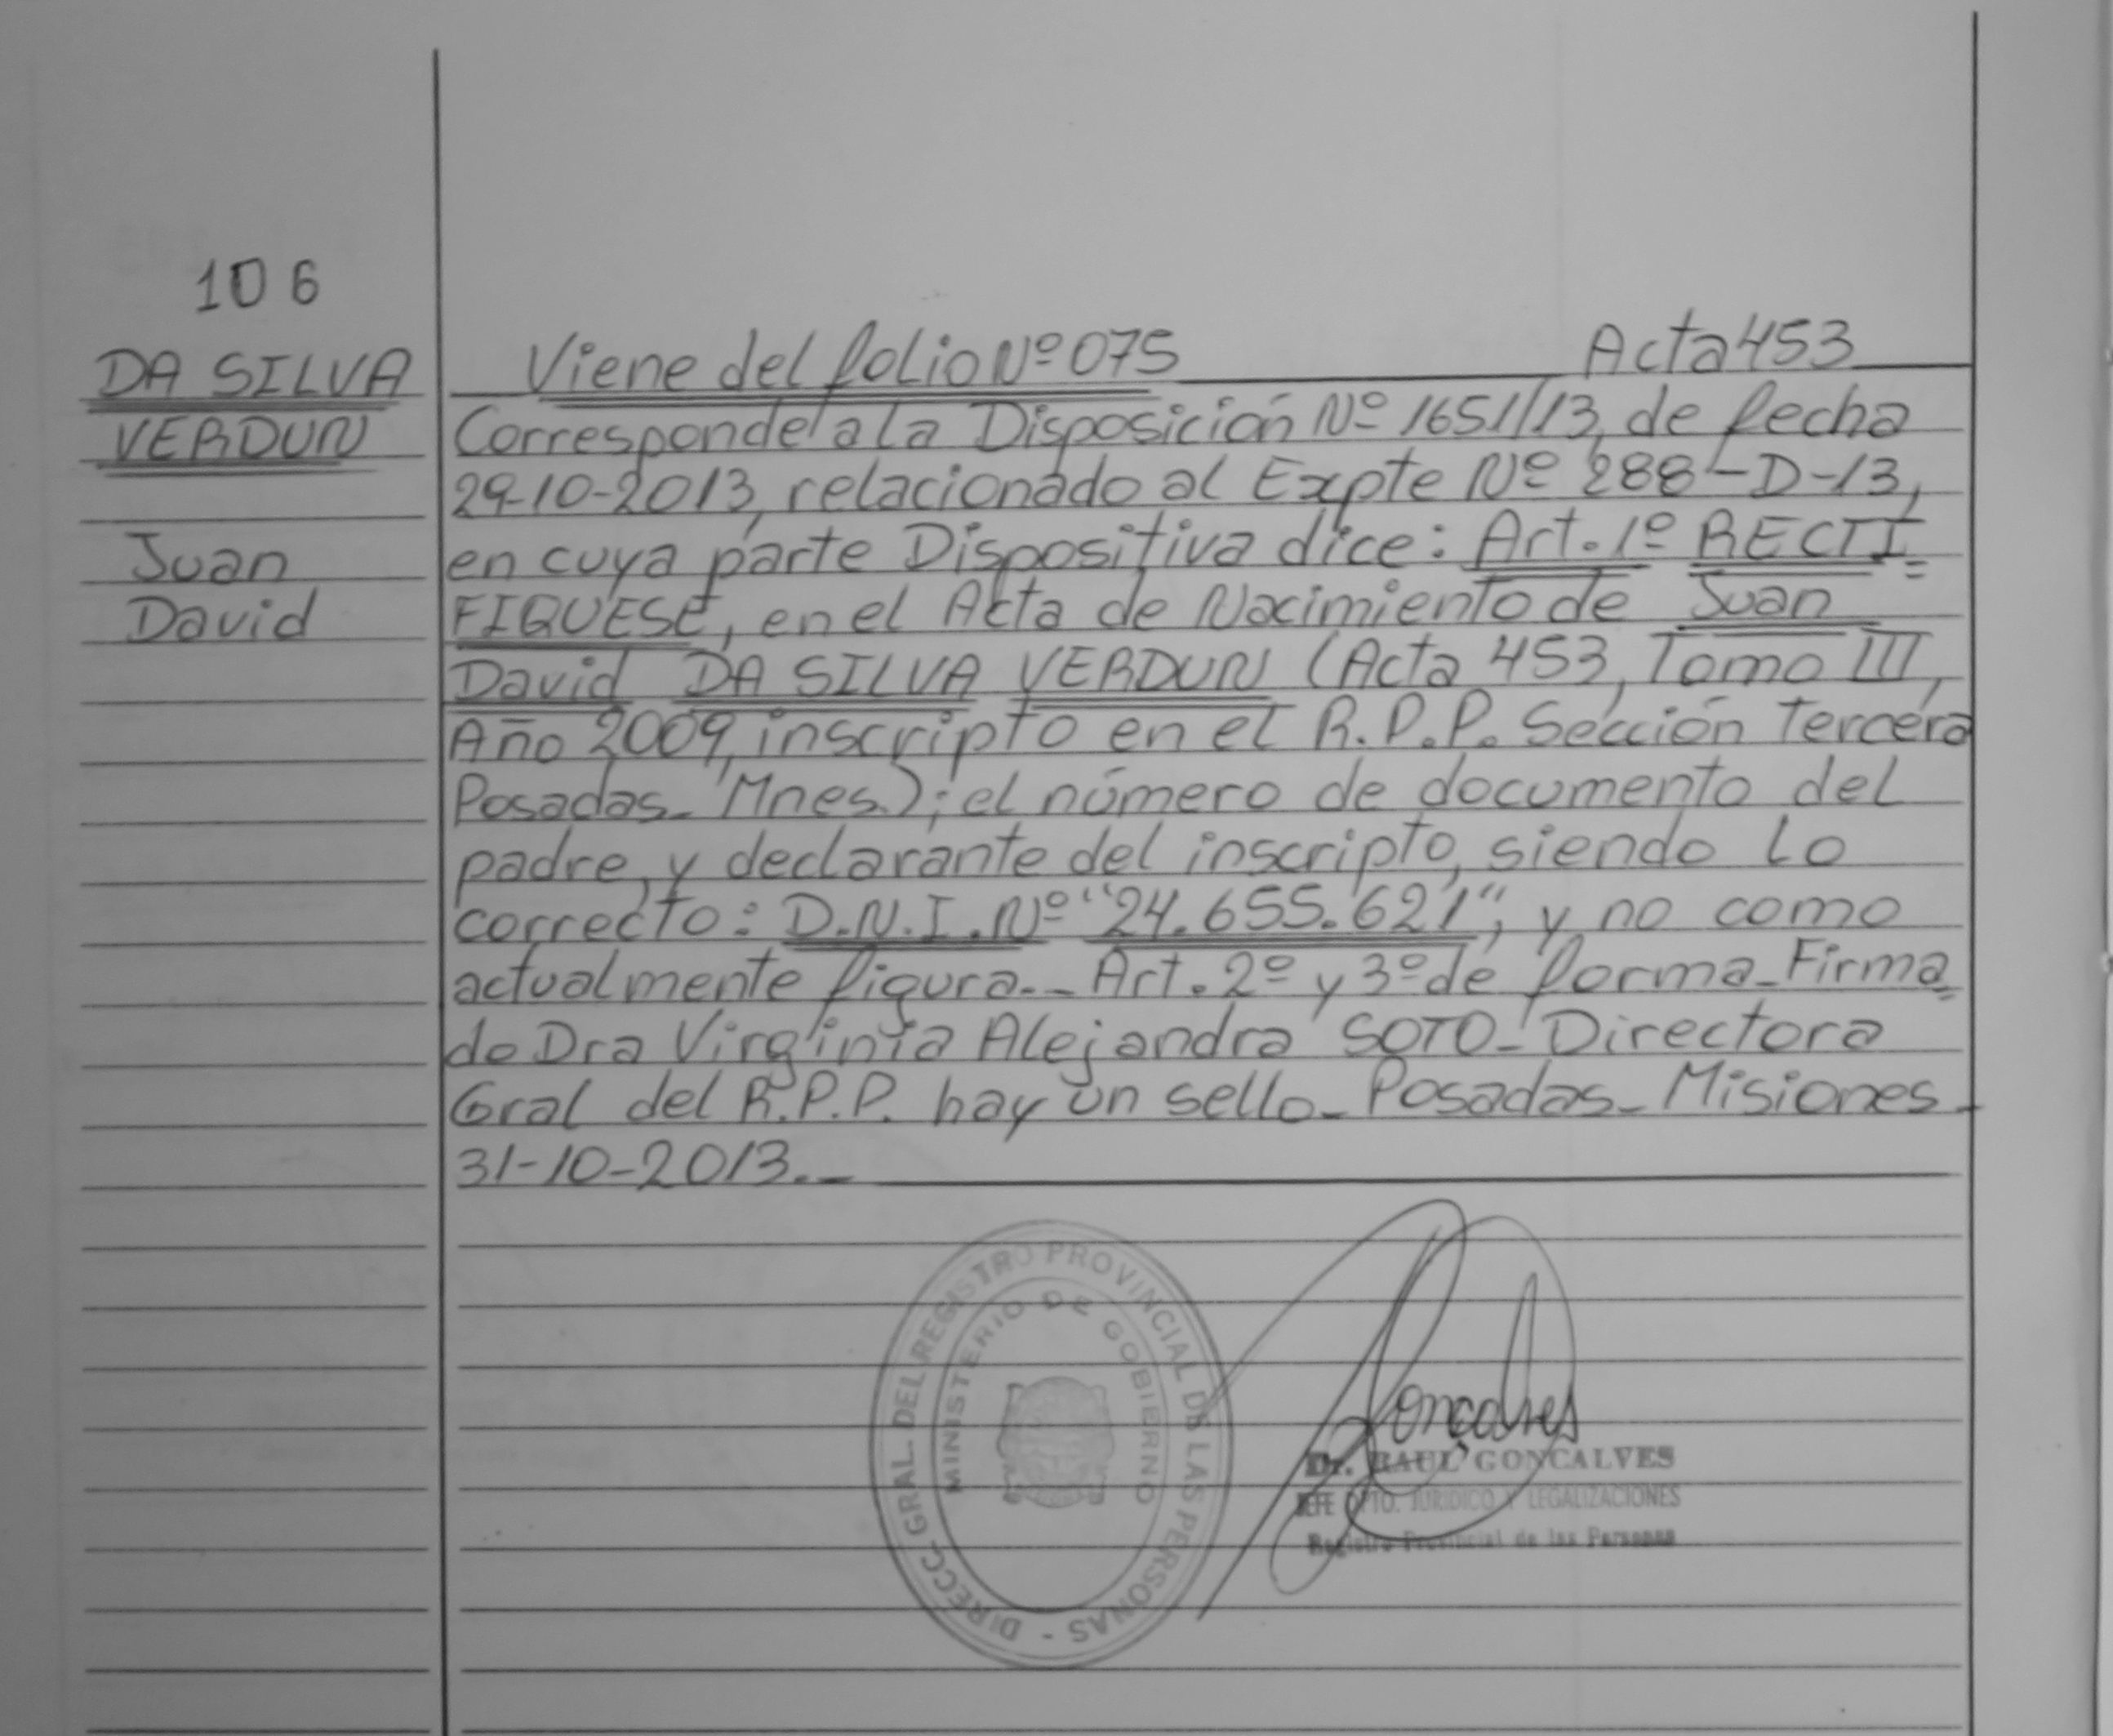 106
DA SILVA
VERDUN
Juan
David
Viene del folio Nº 075 Acta 453
Corresponde a la Disposición Nº 1651/13, de fecha
29-10-2013, relacionado al Expte Nº 288-D-13,
en cuya parte Dispositiva dice: Art. 1º RECTI=
FIQUESE, en el Acta de Nacimiento de Juan
David DA SILVA VERDUN (Acta 453, Tomo III,
Año 2009, inscripto en el R.P.P. Sección Tercera
Posadas_ Mnes.); el número de documento del
padre, y declarante del inscripto, siendo lo
correcto: D.N.I. Nº "24.655.621", y no como
actualmente figura._ Art. 2º y 3º de forma_ Firma=
do Dra Virginia Alejandra SOTO_ Directora
Gral del R.P.P. hay un sello_ Posadas_ Misiones_
31-10-2013._
DIRECC. GRAL. DEL REGISTRO PROVINCIAL DE LAS PERSONAS -
MINISTERIO DE GOBIERNO
Goncalves
Dr. RAUL GONCALVES
JEFE DPTO. JURIDICO Y LEGALIZACIONES
Registro Provincial de las Personas